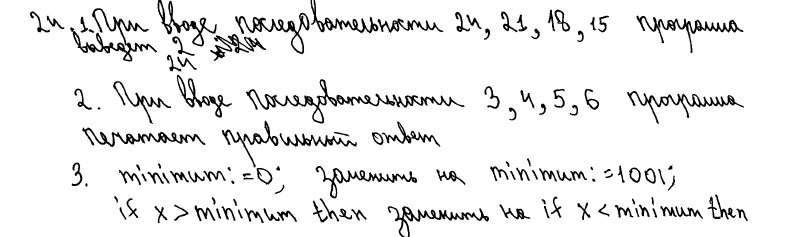 24. 1. При вводе последовательности 24, 21, 18, 15 программа
выведет 2
24
2. При вводе последовательности 3, 4, 5, 6 программа
печатает правильный ответ
3. minimum:=0; заменить на minimum:=1001;
if x>minimum then заменить на if x<minimum then